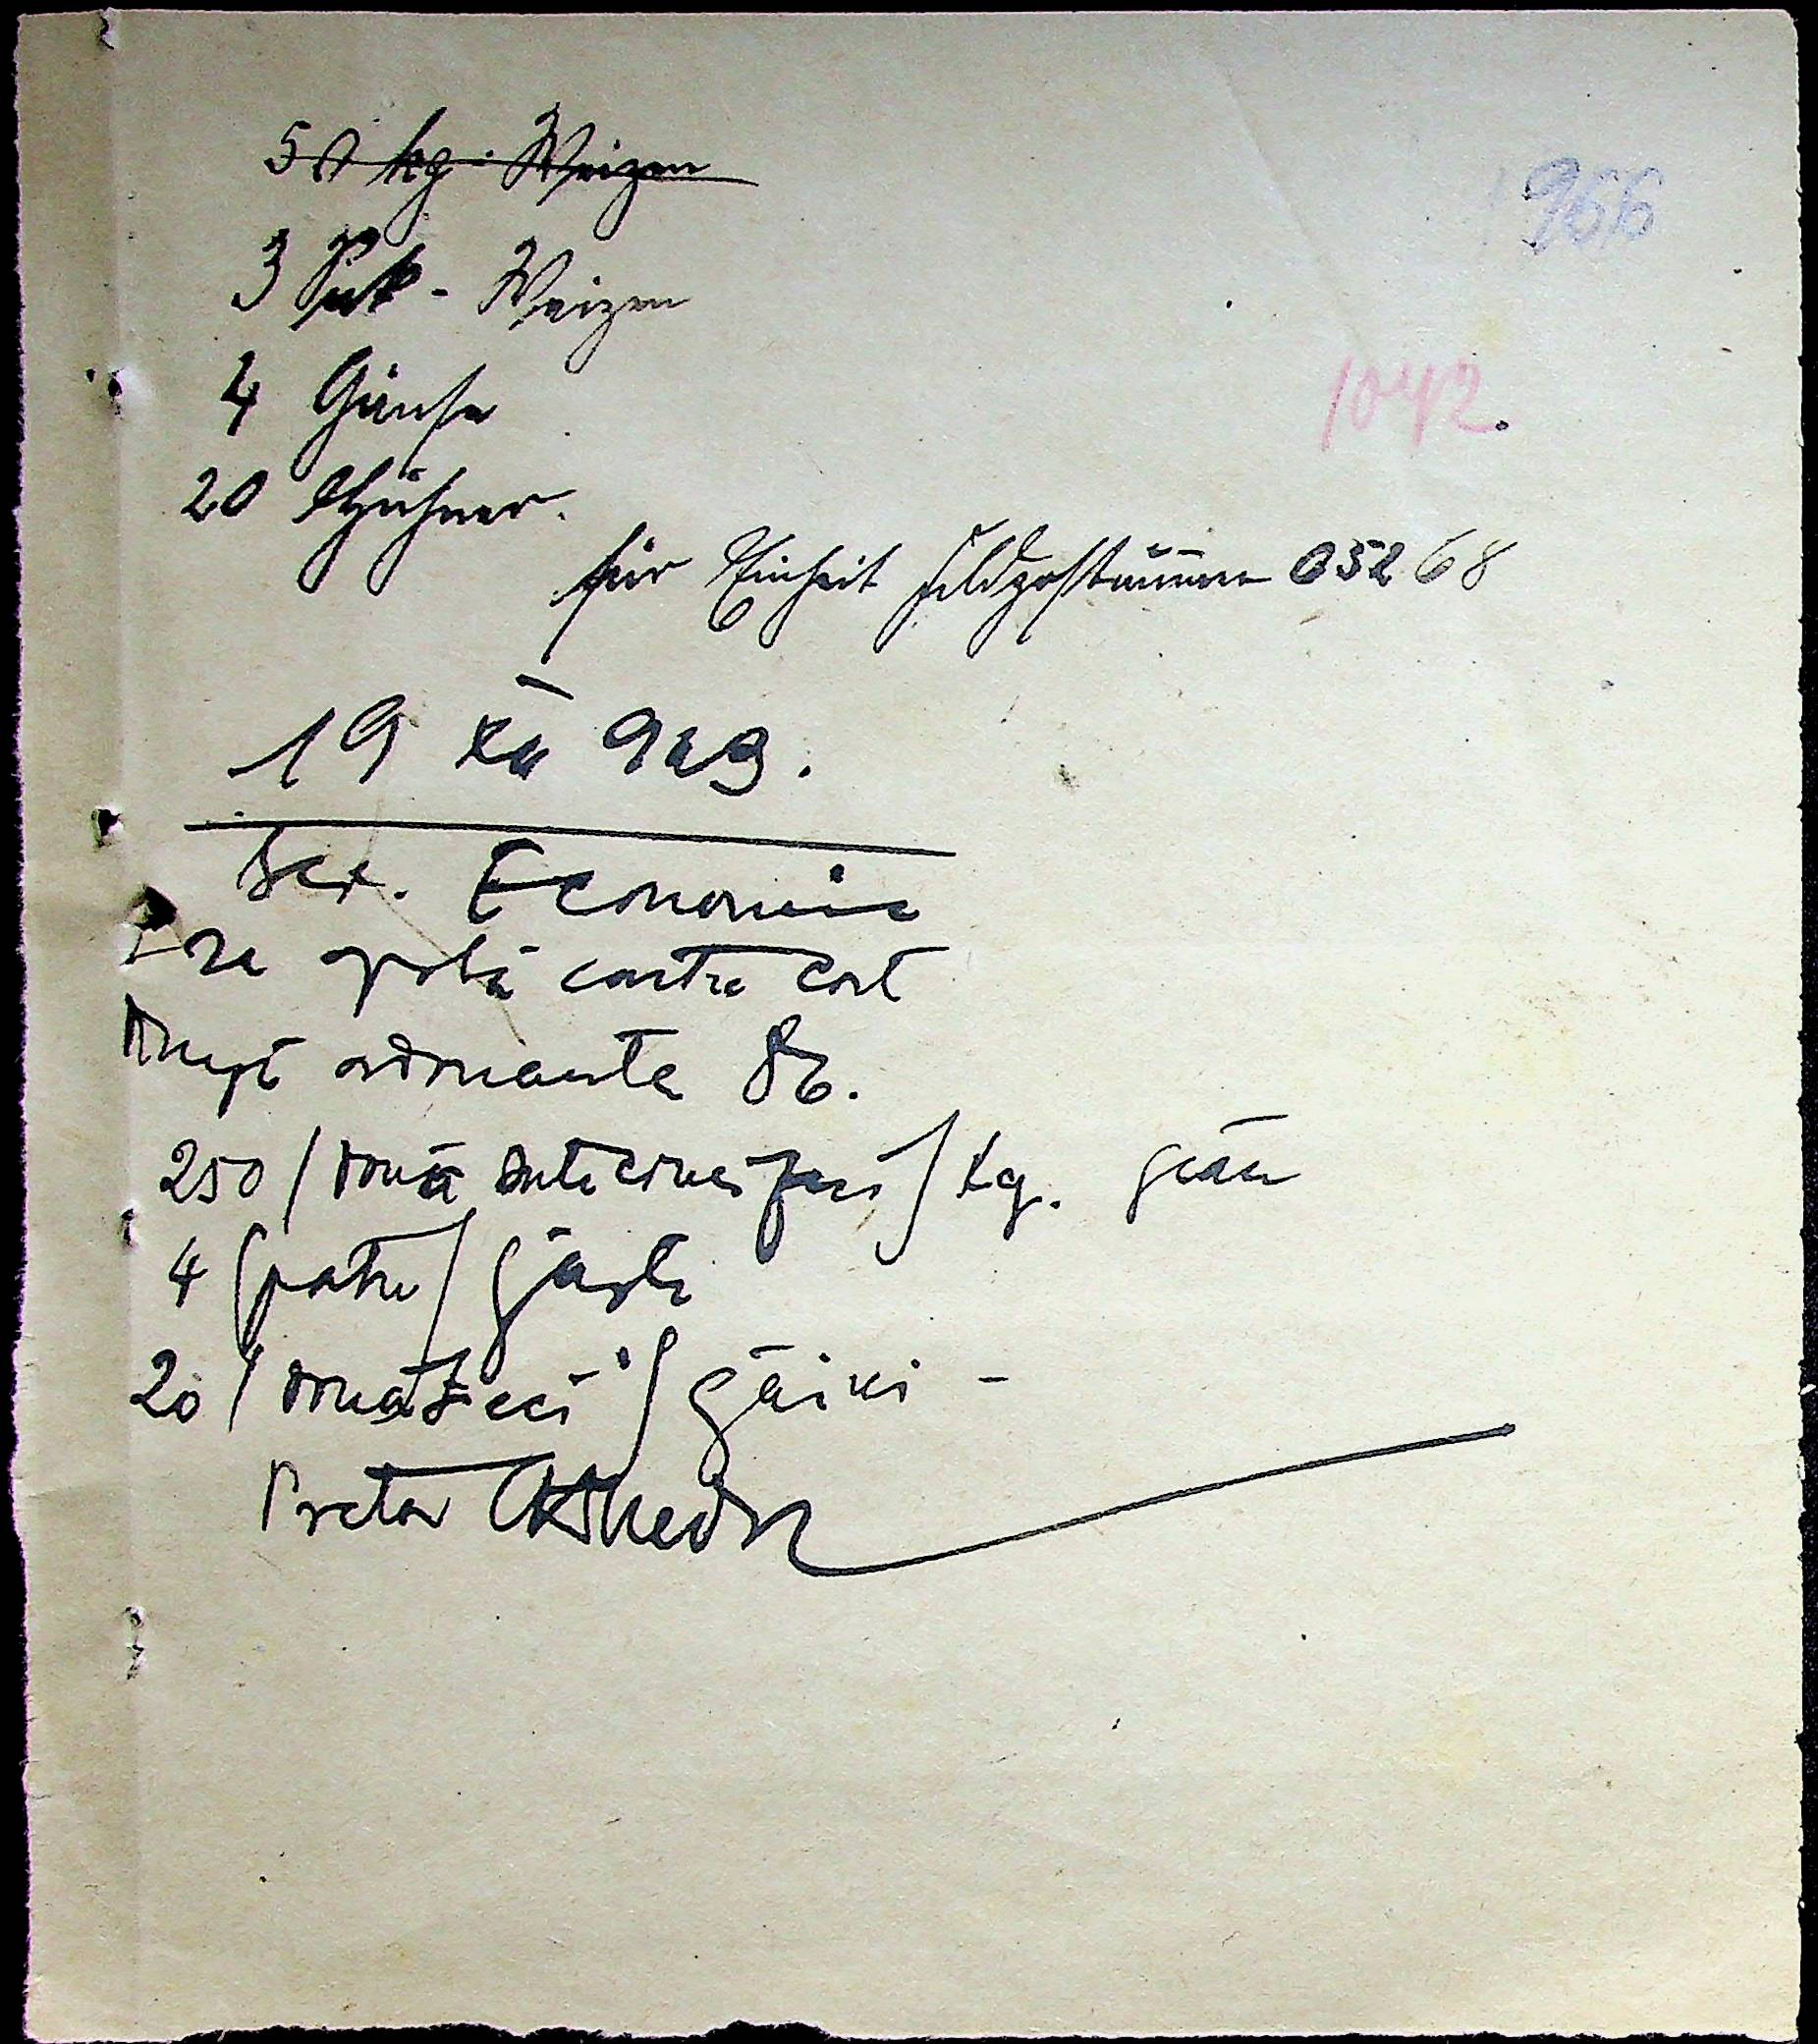 50 kg. Weizen
966
3 - Weizen
1042.
4 Gänse
20 Hühner.
für Einheit Feldpostnummer 05268
19 XII 943.
Ser. Economic
va contra cost
după ordonanta 86.
250 /două sute cincizeci/ kg. grâu
4 /patru/ gâște
20 /douăzeci/ găini -
Pretor